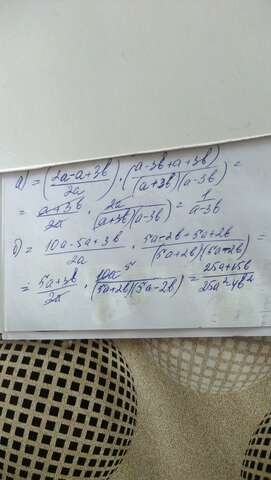 а) = (2a-a+3b / 2a) · (a-3b+a+3b / (a+3b)(a-3b)) =
= a+3b / 2a · 2a / (a+3b)(a-3b) = 1 / a-3b
б) = 10a-5a+3b / 2a · 5a-2b+5a+2b / (5a+2b)(5a-2b) =
= 5a+3b / 2a · 10a 5 / (5a+2b)(5a-2b) = 25a+15b / 25a²-4b²